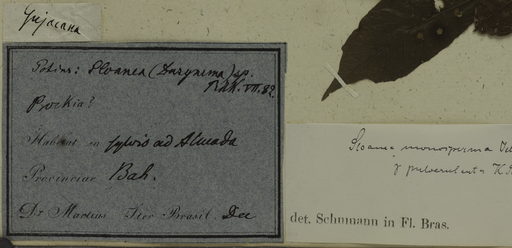 Potius: Sloanea (Dasynema) sp.
VII. 82.
Habitat in sylvis ad Almada
Provinciae Bah.
Dr Martius Iter Brasil. Dec
Sloanea monosperma Vell
γ pulverulenta K.
det. Schumann in Fl. Bras.